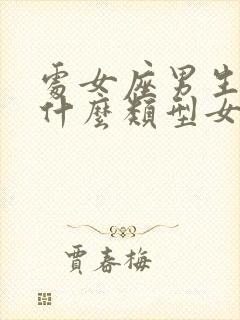 處女座男生
什麼類型女
賈春梅